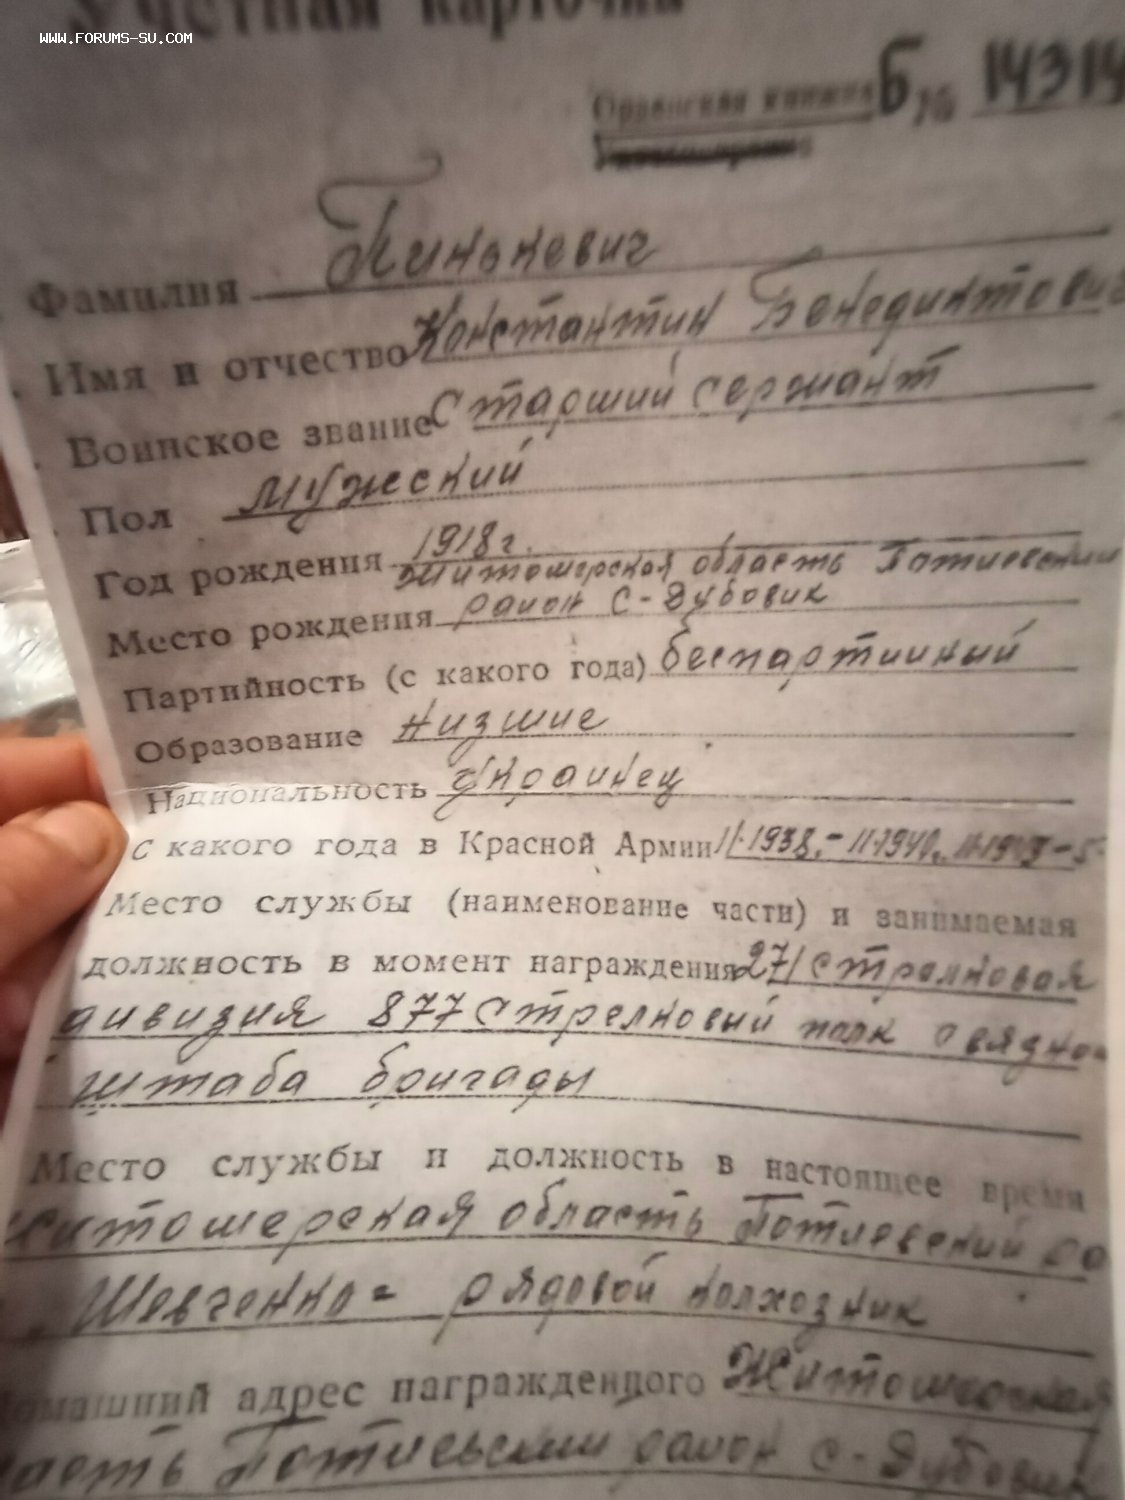 WWW.FORUMS-SU.COM
Учетная карточка
Орденская книжка Б № 14314
Фамилия Пинькевич
Имя и отчество Константин Бенедиктович
Воинское звание Старший сержант
Пол Мужской
Год рождения 1918 г.
Житомерская область Потиевский
Место рождения район с-Дубовик
Партийность (с какого года) беспартийный
Образование низшие
Национальность украинец
С какого года в Красной Армии 11.1938.-11.1940.
Место службы (наименование части) и занимаемая
должность в момент награждения 271 стрелковая
дивизия 877 Стрелковый полк
штаба бригады
Место службы и должность в настоящее время
Житомерская область Потиевский ра
Шевченко- рядовой колхозник
омашний адрес награжденного Житомерская
ласть Потиевский район с-Дубовик